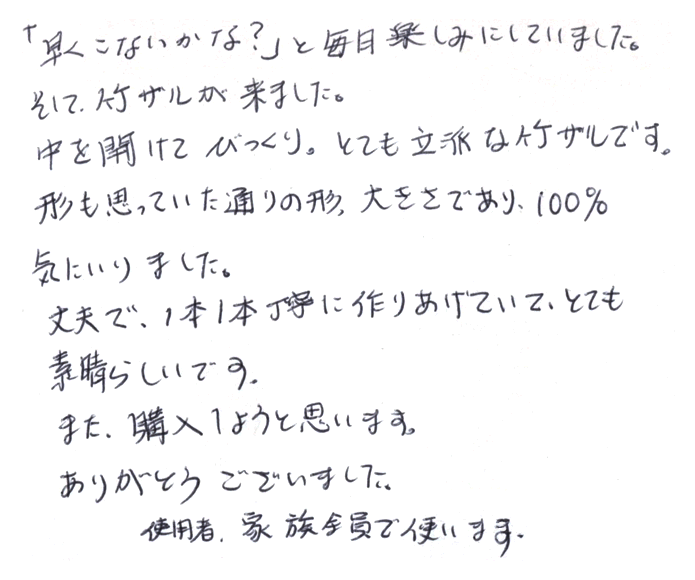 「早くこないかな?」と毎日楽しみにしていました。
そして、竹ザルが来ました。
中を開けてびっくり。とても立派な竹ザルです。
形も思っていた通りの形、大きさであり、100%
気にいりました。
丈夫で、1本1本丁寧に作りあげていて、とても
素晴らしいです。
また、購入しようと思います。
ありがとうございました。
使用者、家族全員で使います。